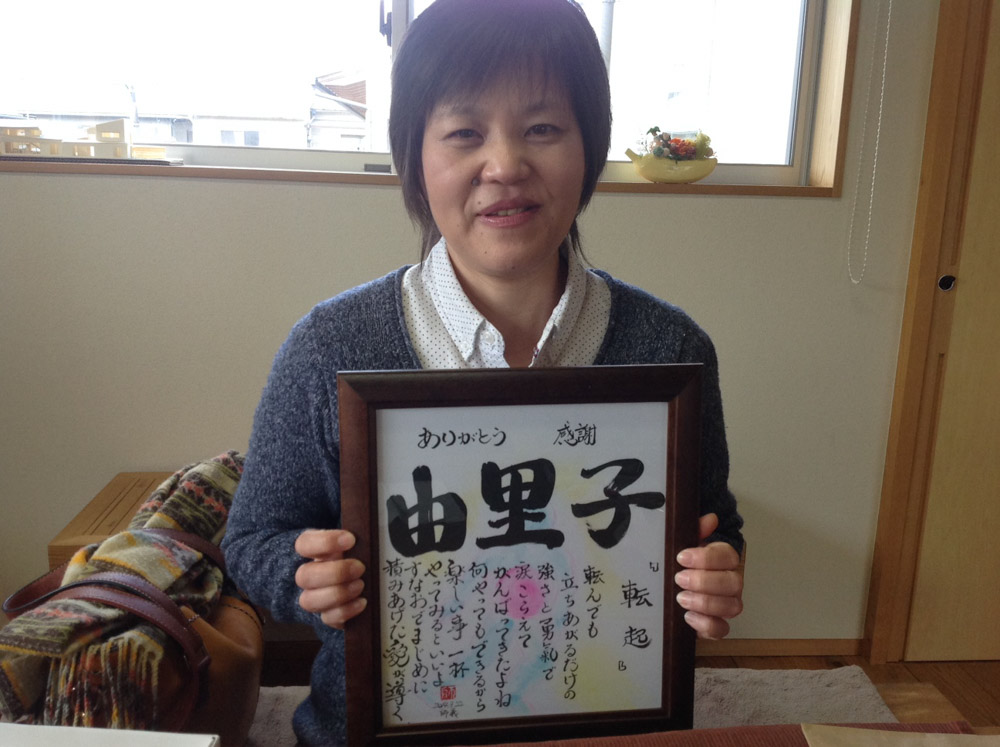 ありがとう 感謝
由里子
「転起」
転んでも
立ちあがるだけの
強さと勇氣で
涙こらえて
がんばってきたよね
何やってもできるから
楽しい事一杯
やってみるといいよ
すなおでまじめに
積みあげた が導く